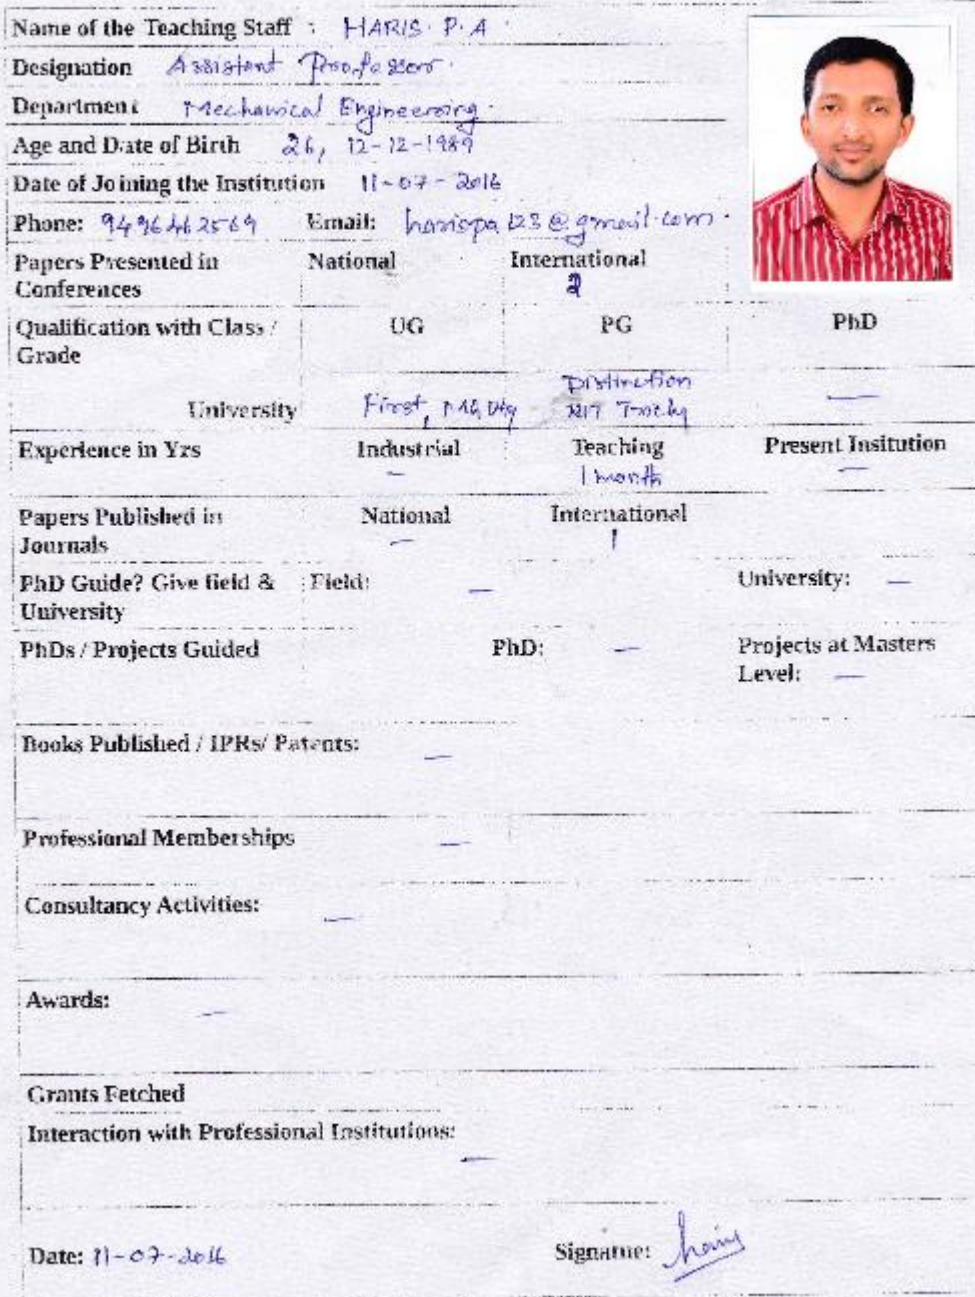 Name of the Teaching Staff : HARIS. P. A
Designation Assistant Professor.
Department Mechanical Engineering.
Age and Date of Birth 26, 12-12-1989
Date of Joining the Institution 11-07-2016
Phone: 9496462569 Email: harispa123@gmail.com.
Papers Presented in National International
Conferences 2
Qualification with Class / UG PG PhD
Grade
Distinction
University First, MG Uty NIT Trichy —
Experience in Yrs Industrial Teaching Present Insitution
— 1 month —
Papers Published in National International
Journals — 1
PhD Guide? Give field & Field: — University: —
University
PhDs / Projects Guided PhD: — Projects at Masters
Level: —
Books Published / IPRs/ Patents: —
Professional Memberships —
Consultancy Activities: —
Awards: —
Grants Fetched
Interaction with Professional Institutions: —
Date: 11-07-2016 Signature: haris